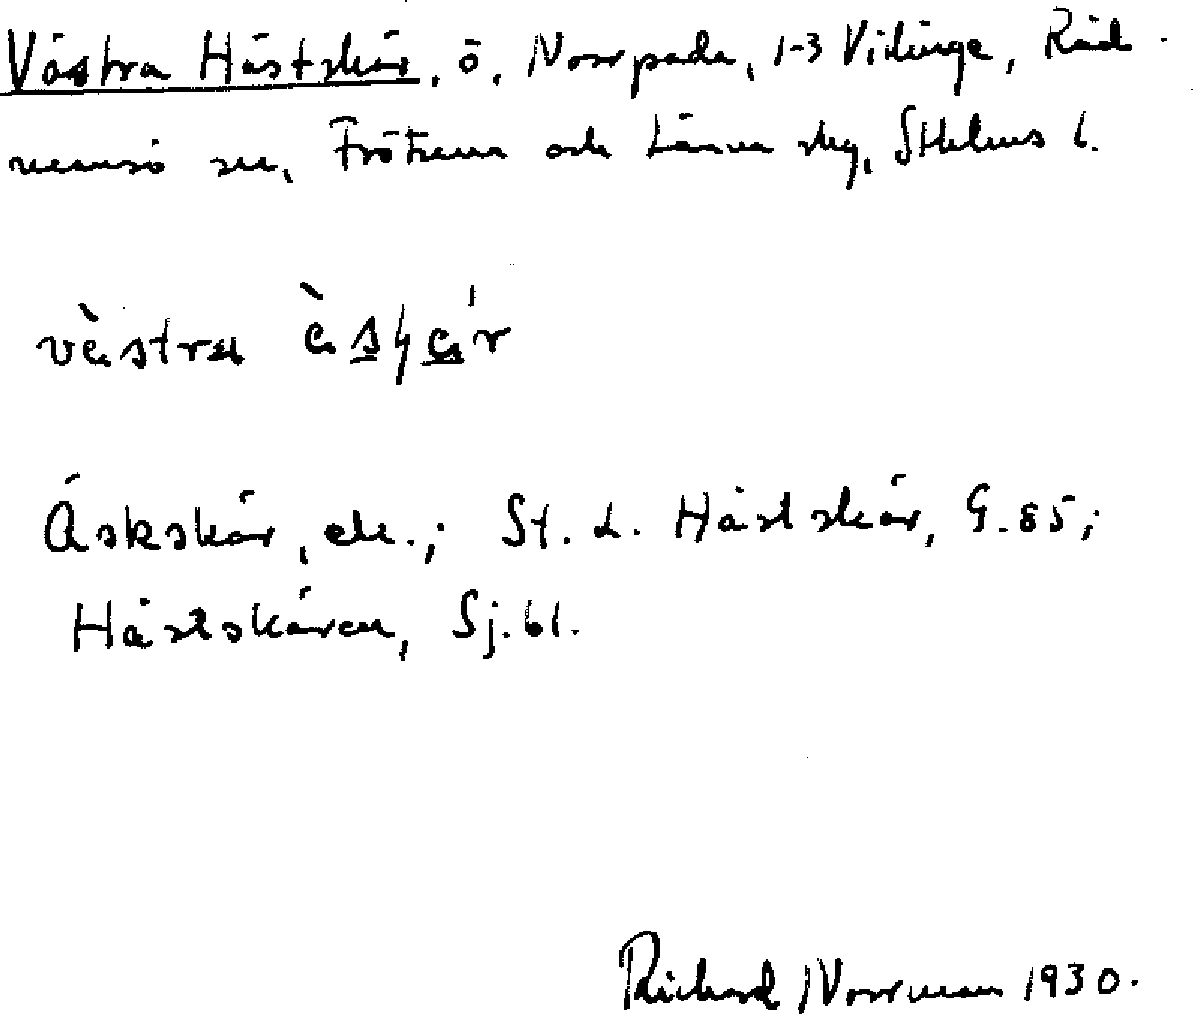 Västra Hästskär, ö, Norrpada, 1-3 Vikinge, Råd-
mansö sn, Frötuna och Länna skg, Sthlms l.
Äskskär, ek.; St. L. Hästskär, G. 85;
Hästskären, Sj.bl.
Richard Norrman 1930.